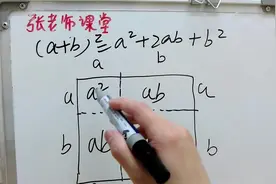 张老师课堂
(a+b)²=a²+2ab+b²
a b
a a² ab a
b ab b